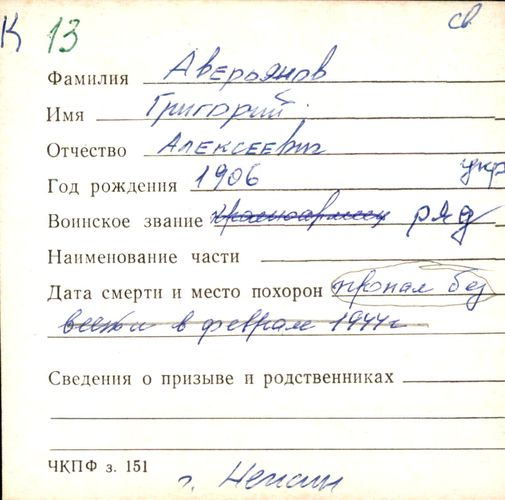 К 13 св
Фамилия Аверьянов
Имя Григорий
Отчество Алексеевич
Год рождения 1906 укр
Воинское звание красноармеец ряд
Наименование части
Дата смерти и место похорон пропал без
вести в феврале 1944 г
Сведения о призыве и родственниках
ЧКПФ з. 151
г. Нежин